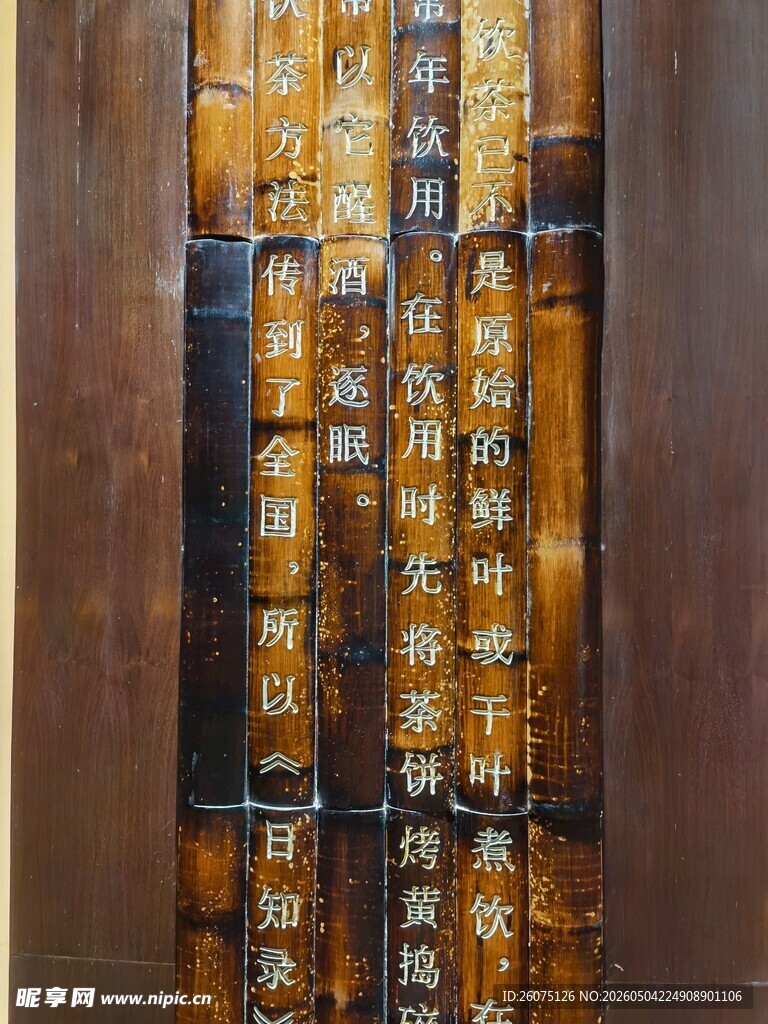 饮茶已不是原始的鲜叶或干叶煮饮，在
常年饮用。在饮用时先将茶饼烤黄捣碎
常以它醒酒，逐眠。
饮茶方法传到了全国，所以《日知录》
昵享网 www.nipic.cn
ID:26075126 NO:20260504224908901106